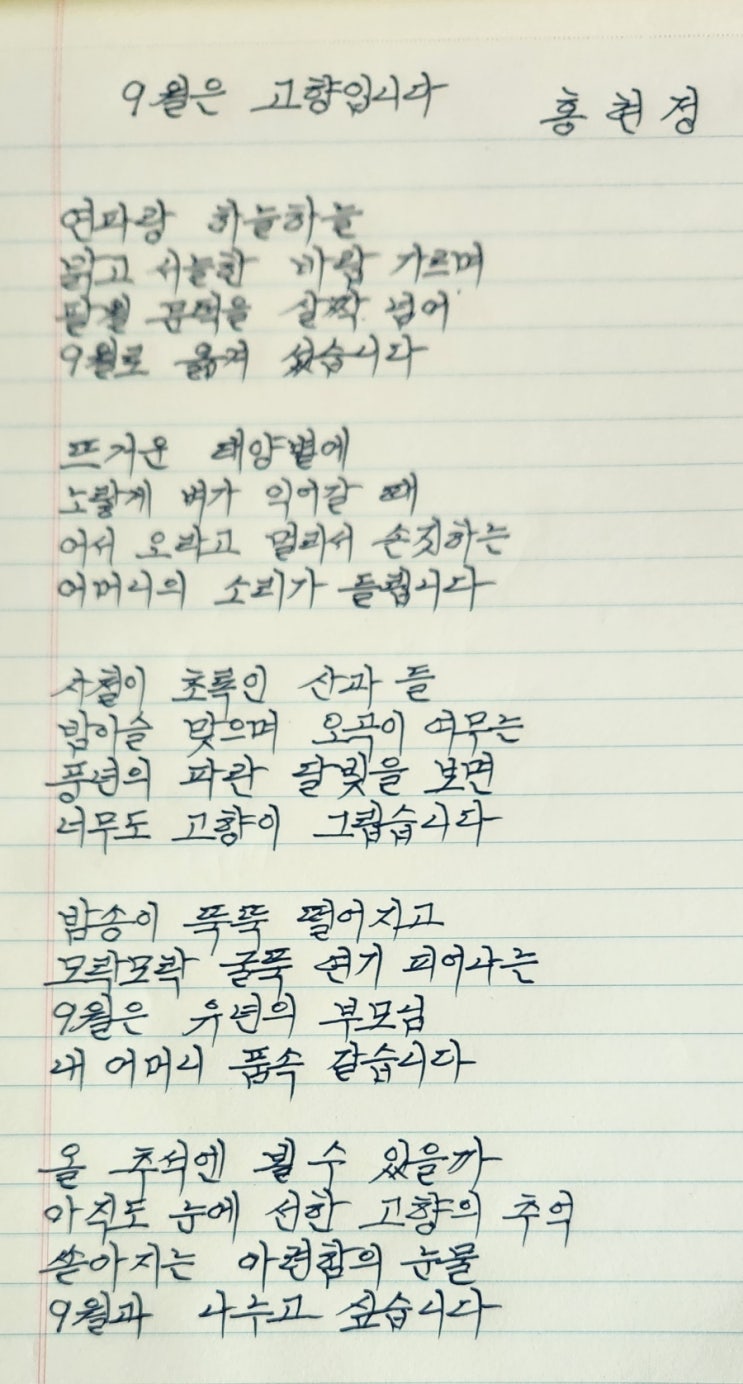 9월은 고향입니다
홍현정
연파랑 하늘하늘
밝고 서늘한 바람 가르며
팔월 문턱을 살짝 넘어
9월로 옮겨 섰습니다
뜨거운 태양볕에
노랗게 벼가 익어갈 때
어서 오라고 멀리서 손짓하는
어머니의 소리가 들립니다
사철이 초록인 산과 들
밤이슬 맞으며 오곡이 여무는
풍년의 파란 달빛을 보면
너무도 고향이 그립습니다
밤송이 뚝뚝 떨어지고
모락모락 굴뚝 연기 피어나는
9월은 유년의 부모님
내 어머니 품속 같습니다
올 추석엔 뵐 수 있을까
아직도 눈에 선한 고향의 추억
쏟아지는 아련함의 눈물
9월과 나누고 싶습니다